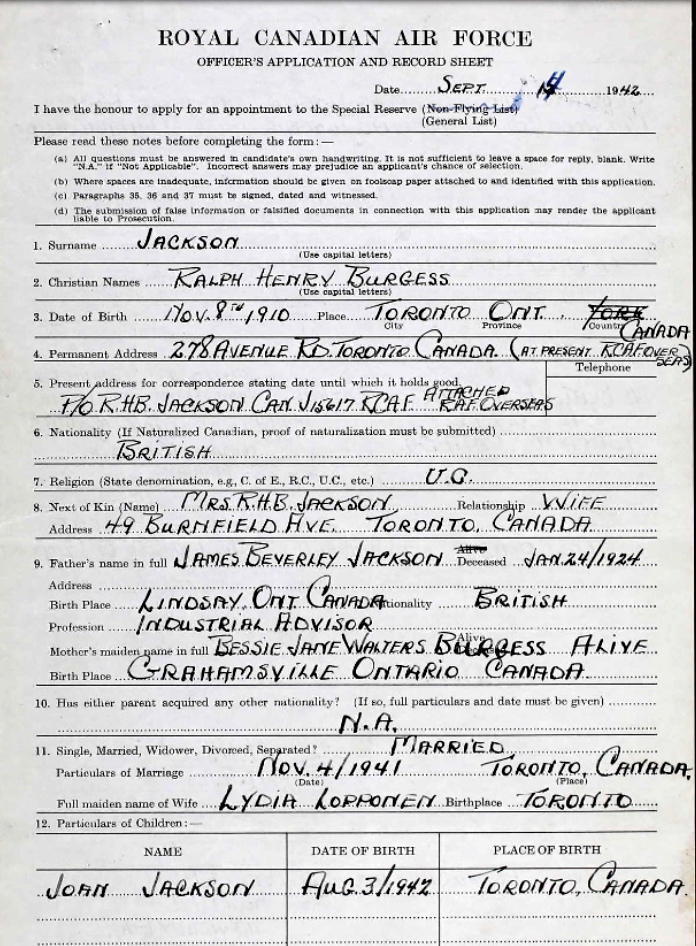 ROYAL CANADIAN AIR FORCE
OFFICER'S APPLICATION AND RECORD SHEET
Date SEPT. 14 1942
I have the honour to apply for an appointment to the Special Reserve (Non-Flying List)
(General List)
Please read these notes before completing the form:—
(a) All questions must be answered in candidate's own handwriting. It is not sufficient to leave a space for reply, blank. Write
"N.A." if "Not Applicable". Incorrect answers may prejudice an applicant's chance of selection.
(b) Where spaces are inadequate, information should be given on foolscap paper attached to and identified with this application.
(c) Paragraphs 35, 36 and 37 must be signed, dated and witnessed.
(d) The submission of false information or falsified documents in connection with this application may render the applicant
liable to Prosecution.
1. Surname JACKSON
(Use capital letters)
2. Christian Names RALPH HENRY BURGESS
(Use capital letters)
3. Date of Birth NOV. 8TH, 1910 Place TORONTO ONT. YORK
City Province Country CANADA
4. Permanent Address 278 AVENUE RD. TORONTO CANADA. (AT PRESENT R.C.A.F. OVERSEAS)
Telephone
5. Present address for correspondence stating date until which it holds good.
P/O R.H.B. JACKSON CAN J15617 RCAF ATTACHED R.A.F. OVERSEAS
6. Nationality (If Naturalized Canadian, proof of naturalization must be submitted)
BRITISH
7. Religion (State denomination, e.g., C. of E., R.C., U.C., etc.) U.C.
8. Next of Kin (Name) MRS. R.H.B. JACKSON Relationship WIFE
Address 49 BURNFIELD AVE. TORONTO, CANADA
9. Father's name in full JAMES BEVERLEY JACKSON Alive Deceased JAN. 24/1924
Address
Birth Place LINDSAY, ONT CANADA Nationality BRITISH
Profession INDUSTRIAL ADVISOR
Mother's maiden name in full BESSIE JANE WALTERS BURGESS Alive ALIVE
Birth Place GRAHAMSVILLE ONTARIO CANADA
10. Has either parent acquired any other nationality? (If so, full particulars and date must be given)
N.A.
11. Single, Married, Widower, Divorced, Separated? MARRIED
Particulars of Marriage NOV. 4/1941 TORONTO, CANADA.
(Date) (Place)
Full maiden name of Wife LYDIA LOPPONEN Birthplace TORONTO
12. Particulars of Children:—
NAME DATE OF BIRTH PLACE OF BIRTH
JOAN JACKSON AUG. 3/1942 TORONTO, CANADA.